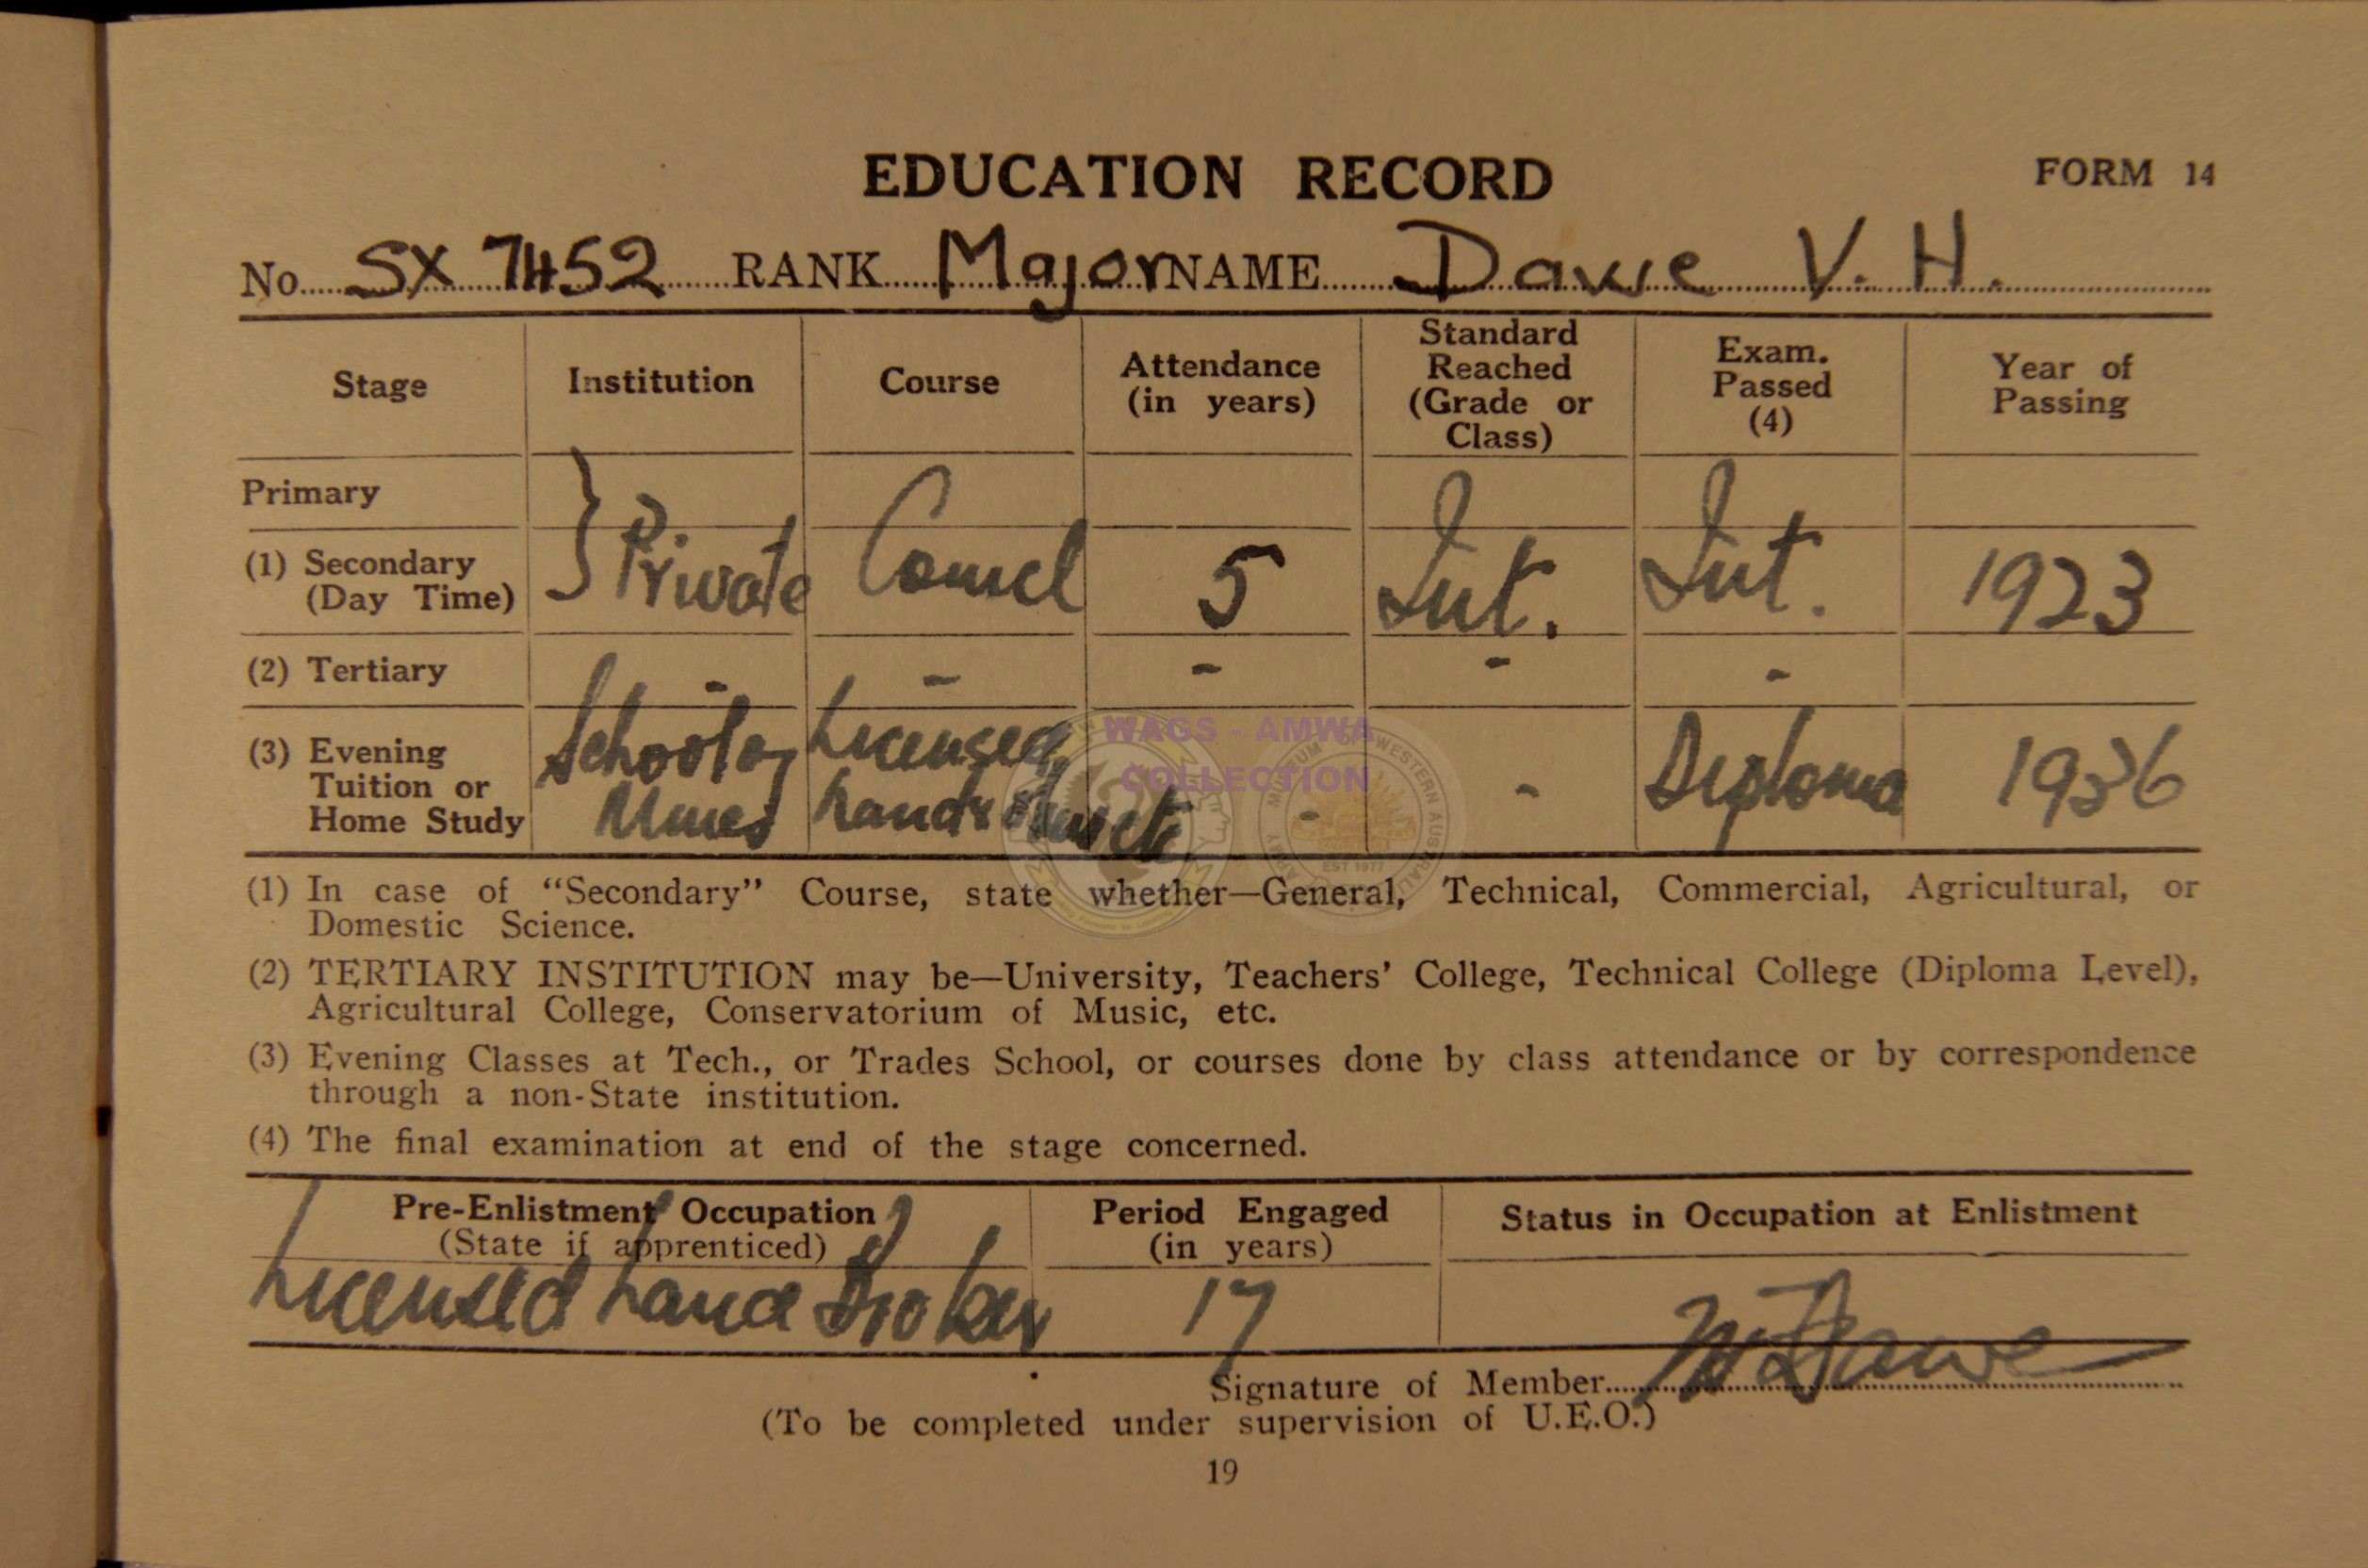 EDUCATION RECORD
FORM 14
No. SX 7452 RANK Major NAME Dawe V. H.
Stage Institution Course Attendance (in years) Standard Reached (Grade or Class) Exam. Passed (4) Year of Passing
Primary
(1) Secondary (Day Time) } Private Comcl 5 Int. Int. 1923
(2) Tertiary - - - - -
(3) Evening Tuition or Home Study School of Mines Licensed Land - - Diploma 1936
WAGS - AMWA
COLLECTION
EST 1977
(1) In case of “Secondary” Course, state whether—General, Technical, Commercial, Agricultural, or
Domestic Science.
(2) TERTIARY INSTITUTION may be—University, Teachers’ College, Technical College (Diploma Level),
Agricultural College, Conservatorium of Music, etc.
(3) Evening Classes at Tech., or Trades School, or courses done by class attendance or by correspondence
through a non-State institution.
(4) The final examination at end of the stage concerned.
Pre-Enlistment Occupation (State if apprenticed) Period Engaged (in years) Status in Occupation at Enlistment
Licensed Land Broker 17
Signature of Member VHDawe
(To be completed under supervision of U.E.O.)
19